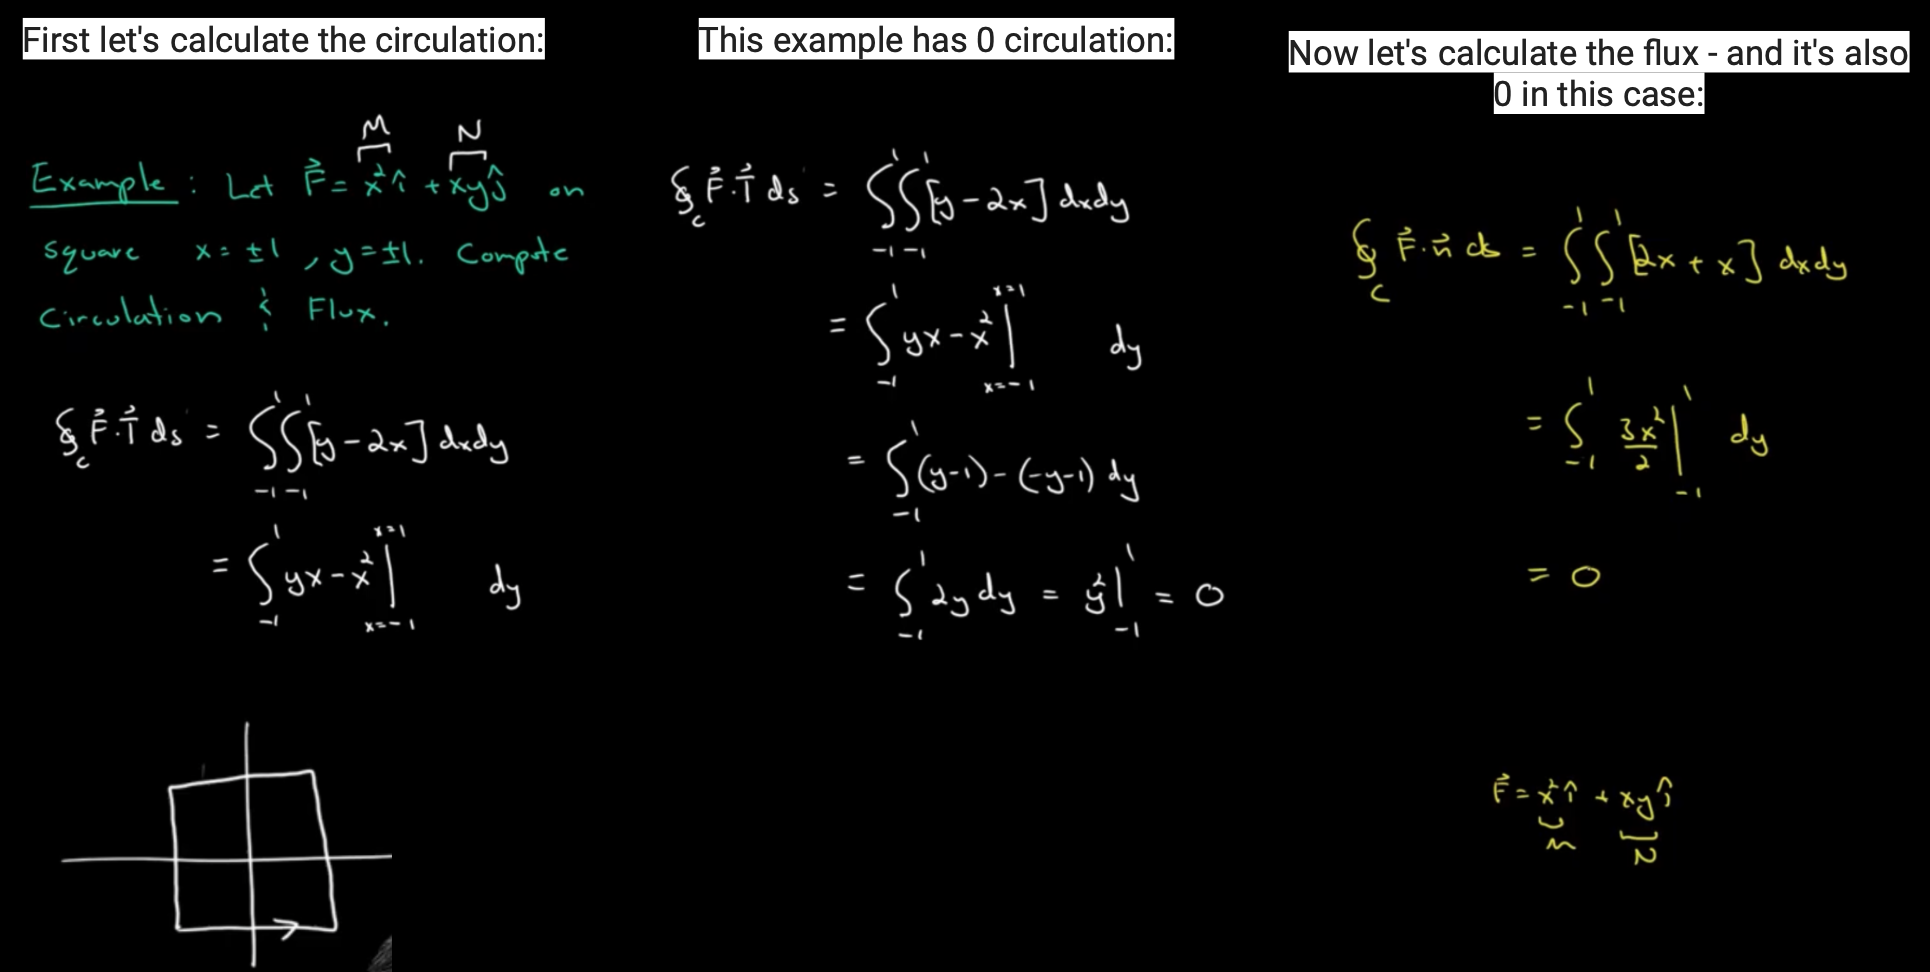 First let's calculate the circulation:
M N
Example: Let F⃗ = x²î + xyĵ on
square x = ±1, y = ±1. Compute
Circulation & Flux.
∮_C F⃗·T⃗ ds = ∫_{-1}^{1}∫_{-1}^{1} [y - 2x] dxdy
= ∫_{-1}^{1} yx - x² |_{x=-1}^{x=1} dy
This example has 0 circulation:
∮_C F⃗·T⃗ ds = ∫_{-1}^{1}∫_{-1}^{1} [y - 2x] dxdy
= ∫_{-1}^{1} yx - x² |_{x=-1}^{x=1} dy
= ∫_{-1}^{1} (y-1) - (-y-1) dy
= ∫_{-1}^{1} 2y dy = y² |_{-1}^{1} = 0
Now let's calculate the flux - and it's also
0 in this case:
∮_C F⃗·n⃗ ds = ∫_{-1}^{1}∫_{-1}^{1} [2x + x] dxdy
= ∫_{-1}^{1} 3x²/2 |_{-1}^{1} dy
= 0
F⃗ = x²î + xyĵ
M N